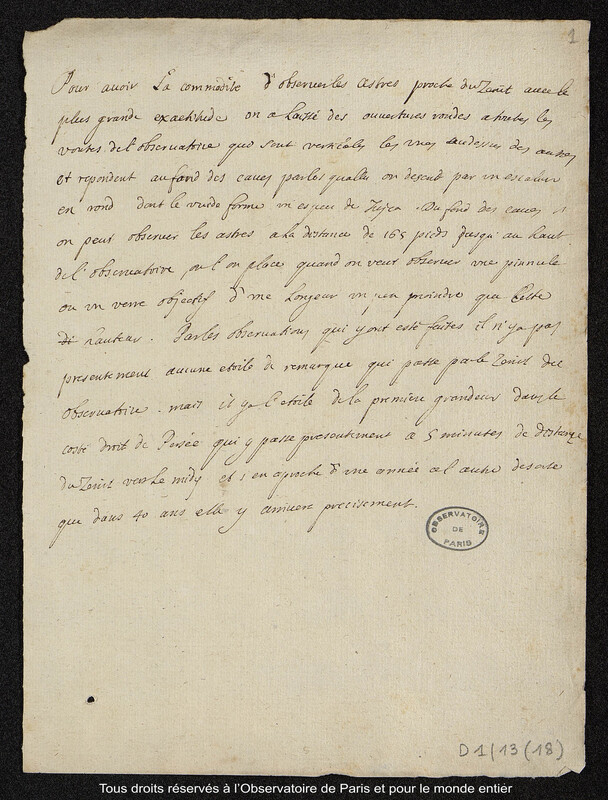 1
Pour avoir La commodité d'observer les astres proche du Zenit avec le
plus grande exactitude on a laissé des ouvertures rondes a toutes les
voutes de l'observatoire qui sont verticales les unes au dessus des autres
et repondent au fond des caves par lesquelles on descent par un escalier
en rond dont le vuide forme un espece de Du fond des caves
on peut observer les astres a la distance de 165 pieds jusqu'au haut
de l'observatoire, ou l'on place quand on veut observer une pinnule
ou un verre objectif d'une longeur un peu moindre que cette
di hauteur. Par les observations qui y ont esté faites il n'y a pas
presentement aucune etoile de remarque qui passe par le Zenit de
observatoire. mais il y a l'etoile de la premiere grandeur dans le
costé droit de Persée qui y passe presentement a 5 minutes de distance
du Zenit vers Le midy et s'en aproche d'une année a l'autre de sorte
que dans 40 ans elle y arrivera precisement.
OBSERVATOIRE
DE
PARIS
D1/13(18)
Tous droits réservés à l'Observatoire de Paris et pour le monde entier